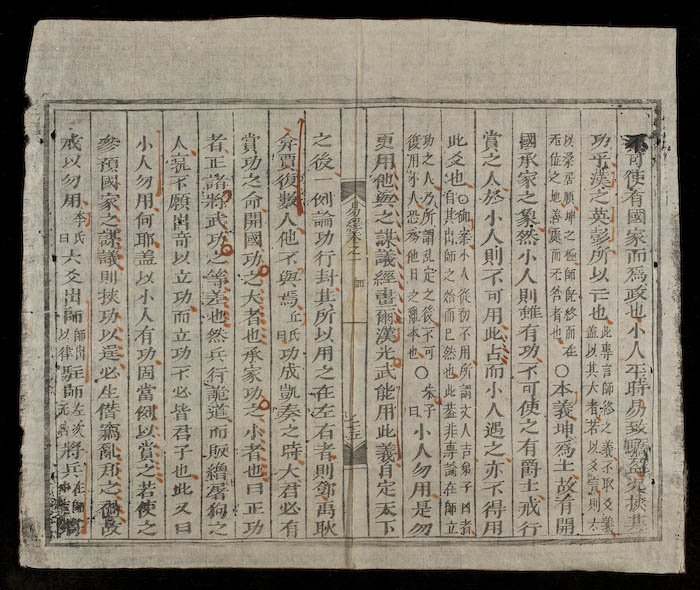 不可使有國家而爲政也小人平時易致驕盈况挾其
功乎漢之英彭所以亡也此專言師終之義不取爻義
蓋以其大者若以爻言則六
以柔居順坤之極師旣終而在
无位之地善處而无咎者也〇本義坤爲土故有開
國承家之象然小人則雖有功不可使之有爵土戒行
賞之人於小人則不可用此占而小人遇之亦不得用
此爻也〇御案小人從初不用所謂丈人吉弟子凶者
自其出師之始而已然也此蓋非專論在師立
功之人乃所謂亂定之後不可
復用小人恐爲他日之亂本也〇朱子
曰小人勿用是勿
更用他與之謀議經畫爾漢光武能用此義自定天下
易經卷之一 師
七五
之後一例論功行封其所以用之在左右者則鄧禹耿
弇賈復數人他不與焉丘氏
曰功成凱奏之時大君必有
賞功之命開國功之大者也承家功之小者也曰正功
者正諸將武功之等差也然兵行詭道而販繒屠狗之
人或不願出奇以立功而立功不必皆君子也此又曰
小人勿用何耶蓋以小人有功固當例以賞之若使之
參預國家之謀議則挾功以逞必生僭竊亂邦之禍故
戒以勿用李氏
曰六爻出師師出
以律駐師左次
无咎將兵在師